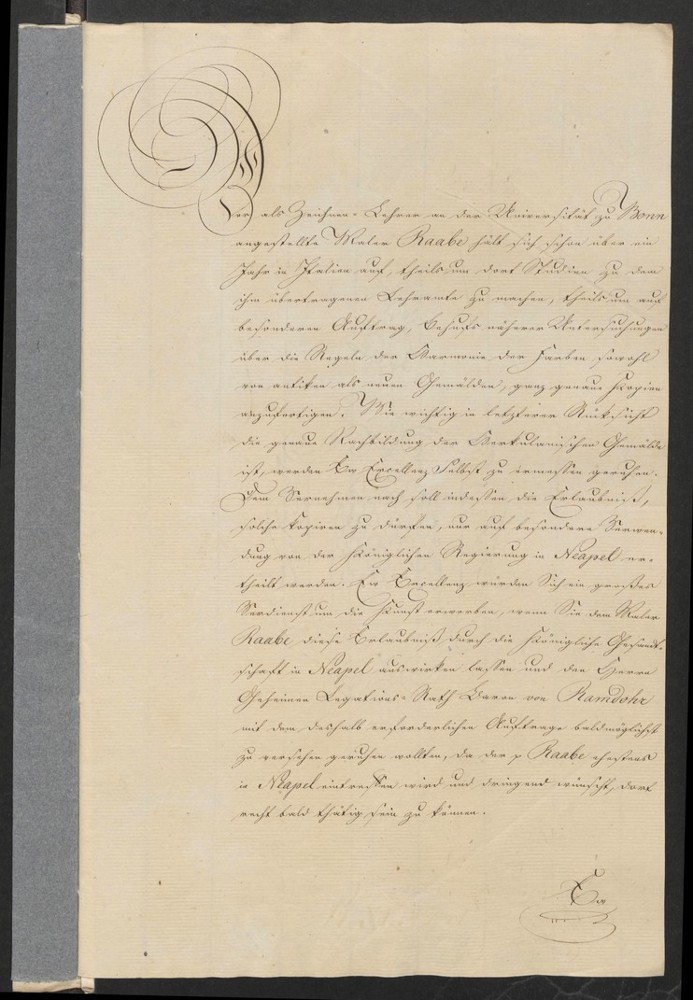 Der als Zeichnen-Lehrer an der Universität zu Bonn
angestellte Maler Raabe hält sich schon über ein
Jahr in Italien auf, theils um dort Studien zu dem
ihm übertragenen Lehramte zu machen, theils um auf
besonderen Auftrag, Behufs näherer Untersuchungen
über die Regeln der Harmonie der Farben sowohl
von antiken als neuen Gemälden, ganz genaue Kopien
anzufertigen. Wie wichtig in letzterer Rücksicht
die genaue Nachbildung der Herkulanischen Gemälde
ist, werden Ew Excellenz Selbst zu ermessen geruhen.
Dem Vernehmen nach soll indessen die Erlaubniß,
solche kopiren zu dürfen, nur auf besondere Verwen-
dung von der Königlichen Regierung in Neapel er-
theilt werden. Ew Excellenz würden Sich ein großes
Verdienst um die Kunst erwerben, wenn Sie dem Maler
Raabe diese Erlaubniß durch die Königliche Gesandt-
schaft in Neapel auswirken lassen und den Herrn
Geheimen Legations-Rath Baron von Ramdohr
mit dem deshalb erforderlichen Auftrage baldmöglichst
zu versehen geruhen wollten, da der p Raabe ehestens
in Neapel eintreffen wird und dringend wünscht, dort
recht bald thätig sein zu können.
Ew